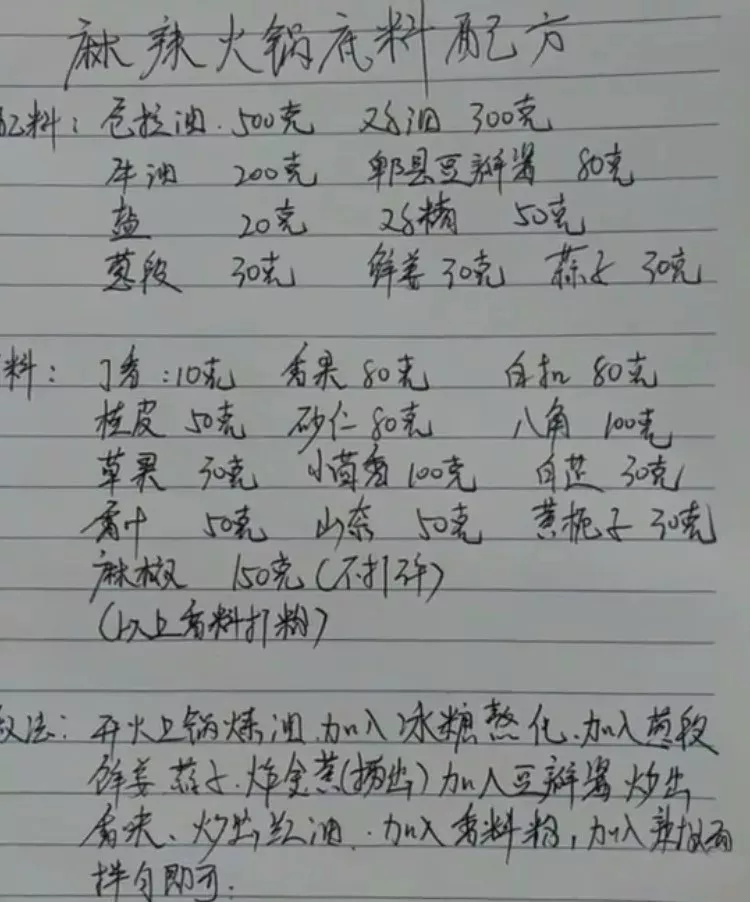 麻辣火锅底料配方
配料：色拉油.500克 鸡油 300克
牛油 200克 郫县豆瓣酱 80克
盐 20克 鸡精 50克
葱段 30克 鲜姜30克 蒜子 30克
料：丁香：10克 香果 80克 白扣 80克
桂皮 50克 砂仁80克 八角 100克
草果 30克 小茴香100克 白芷 30克
香叶 50克 山奈 50克 黄栀子 30克
麻椒 150克（不打碎）
（以上香料打粉）
做法：开火上锅炼油.加入冰糖熬化.加入葱段
鲜姜 蒜子.炸金黄(捞出)加入豆瓣酱炒出
香来、炒出红油.加入香料粉，加入辣椒面
拌匀即可.